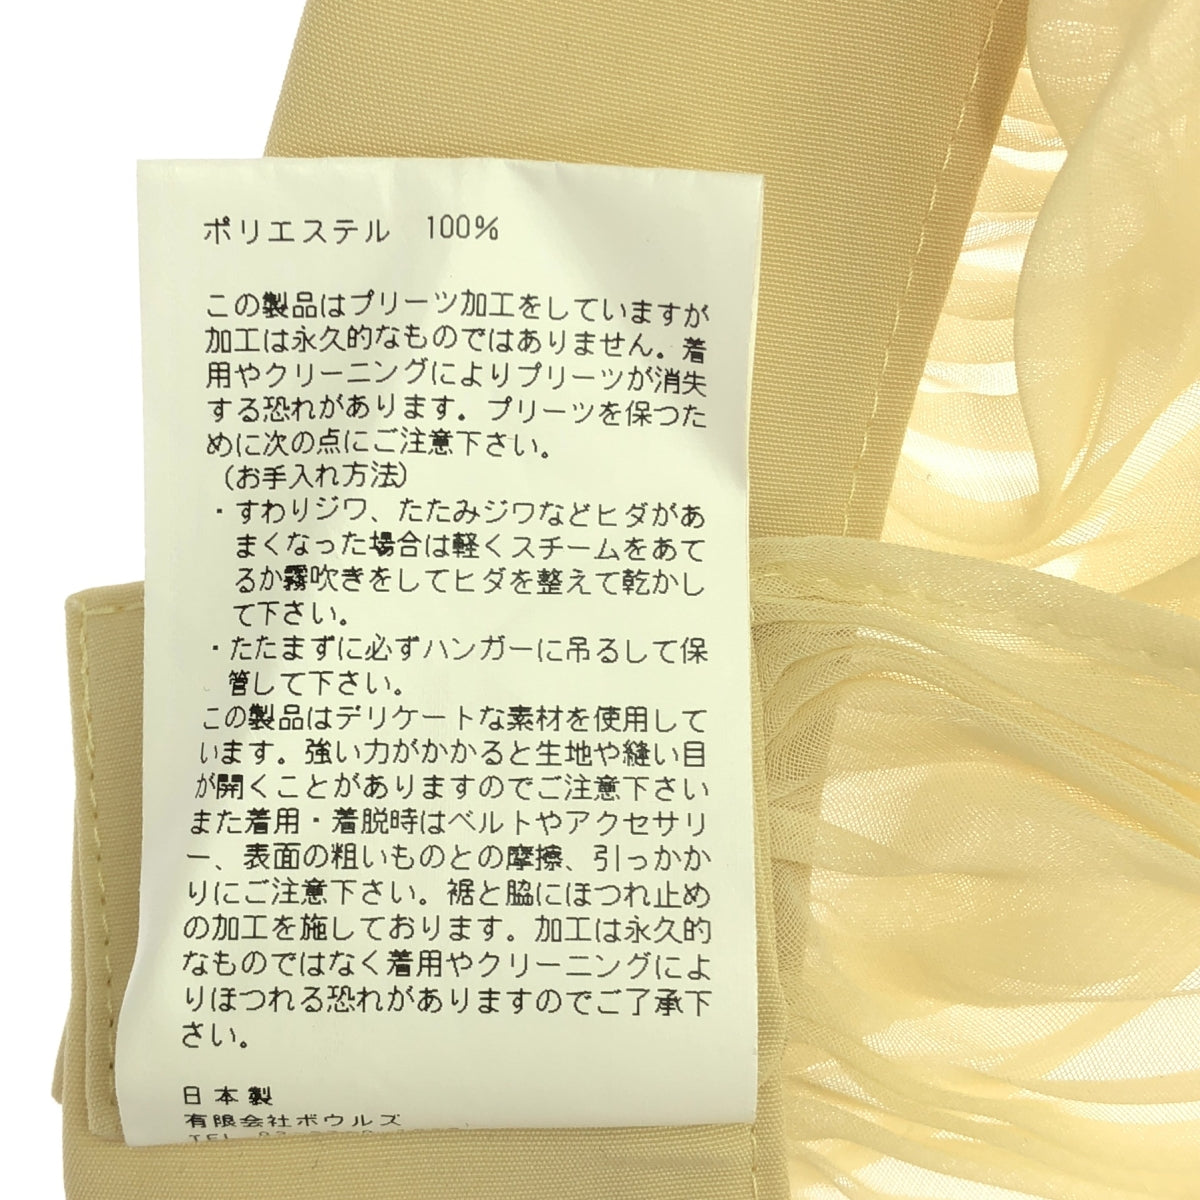 ポリエステル 100%
この製品はプリーツ加工をしていますが
加工は永久的なものではありません。着
用やクリーニングによりプリーツが消失
する恐れがあります。プリーツを保つた
めに次の点にご注意下さい。
(お手入れ方法)
・すわりジワ、たたみジワなどヒダがあ
まくなった場合は軽くスチームをあて
るか霧吹きをしてヒダを整えて乾かし
て下さい。
・たたまずに必ずハンガーに吊るして保
管して下さい。
この製品はデリケートな素材を使用して
います。強い力がかかると生地や縫い目
が開くことがありますのでご注意下さい
また着用・着脱時はベルトやアクセサリ
ー、表面の粗いものとの摩擦、引っかか
りにご注意下さい。裾と脇にほつれ止め
の加工を施しております。加工は永久的
なものではなく着用やクリーニングによ
りほつれる恐れがありますのでご了承下
さい。
日本製
有限会社ボウルズ
TEL